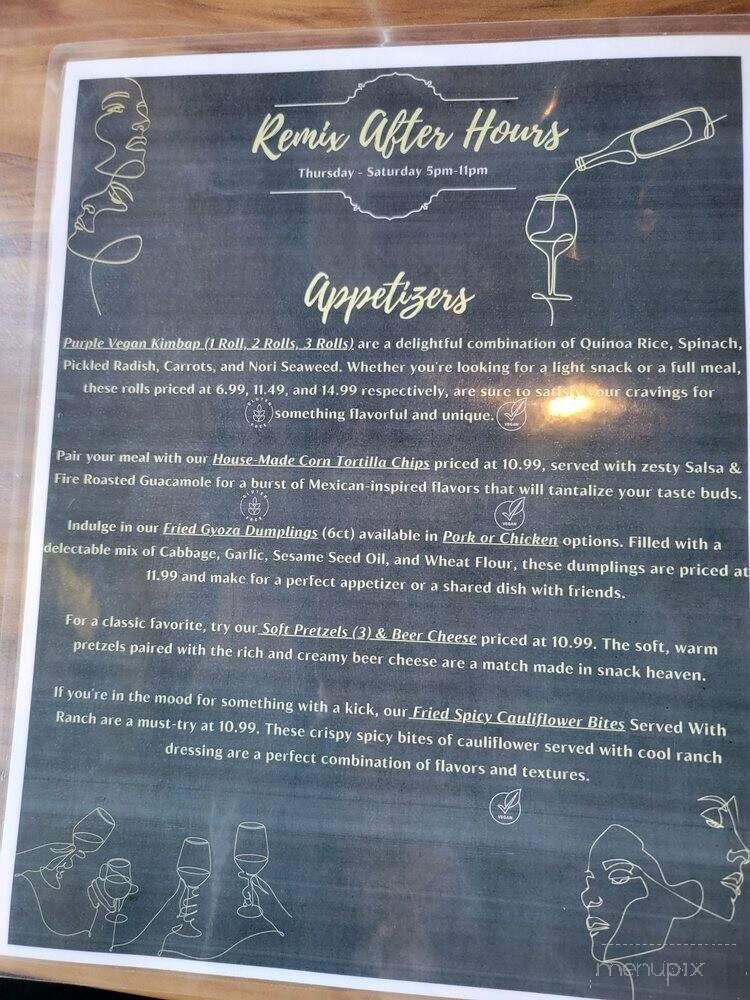 Remix After Hours
Thursday - Saturday 5pm-11pm
Appetizers
Purple Vegan Kimbap (1 Roll, 2 Rolls, 3 Rolls) are a delightful combination of Quinoa Rice, Spinach,
Pickled Radish, Carrots, and Nori Seaweed. Whether you're looking for a light snack or a full meal,
these rolls priced at 6.99, 11.49, and 14.99 respectively, are sure to satisfy your cravings for
something flavorful and unique.
GLUTEN FREE
VEGAN
Pair your meal with our House-Made Corn Tortilla Chips priced at 10.99, served with zesty Salsa &
Fire Roasted Guacamole for a burst of Mexican-inspired flavors that will tantalize your taste buds.
GLUTEN FREE
VEGAN
Indulge in our Fried Gyoza Dumplings (6ct) available in Pork or Chicken options. Filled with a
delectable mix of Cabbage, Garlic, Sesame Seed Oil, and Wheat Flour, these dumplings are priced at
11.99 and make for a perfect appetizer or a shared dish with friends.
For a classic favorite, try our Soft Pretzels (3) & Beer Cheese priced at 10.99. The soft, warm
pretzels paired with the rich and creamy beer cheese are a match made in snack heaven.
If you're in the mood for something with a kick, our Fried Spicy Cauliflower Bites Served With
Ranch are a must-try at 10.99. These crispy spicy bites of cauliflower served with cool ranch
dressing are a perfect combination of flavors and textures.
VEGAN
menupix